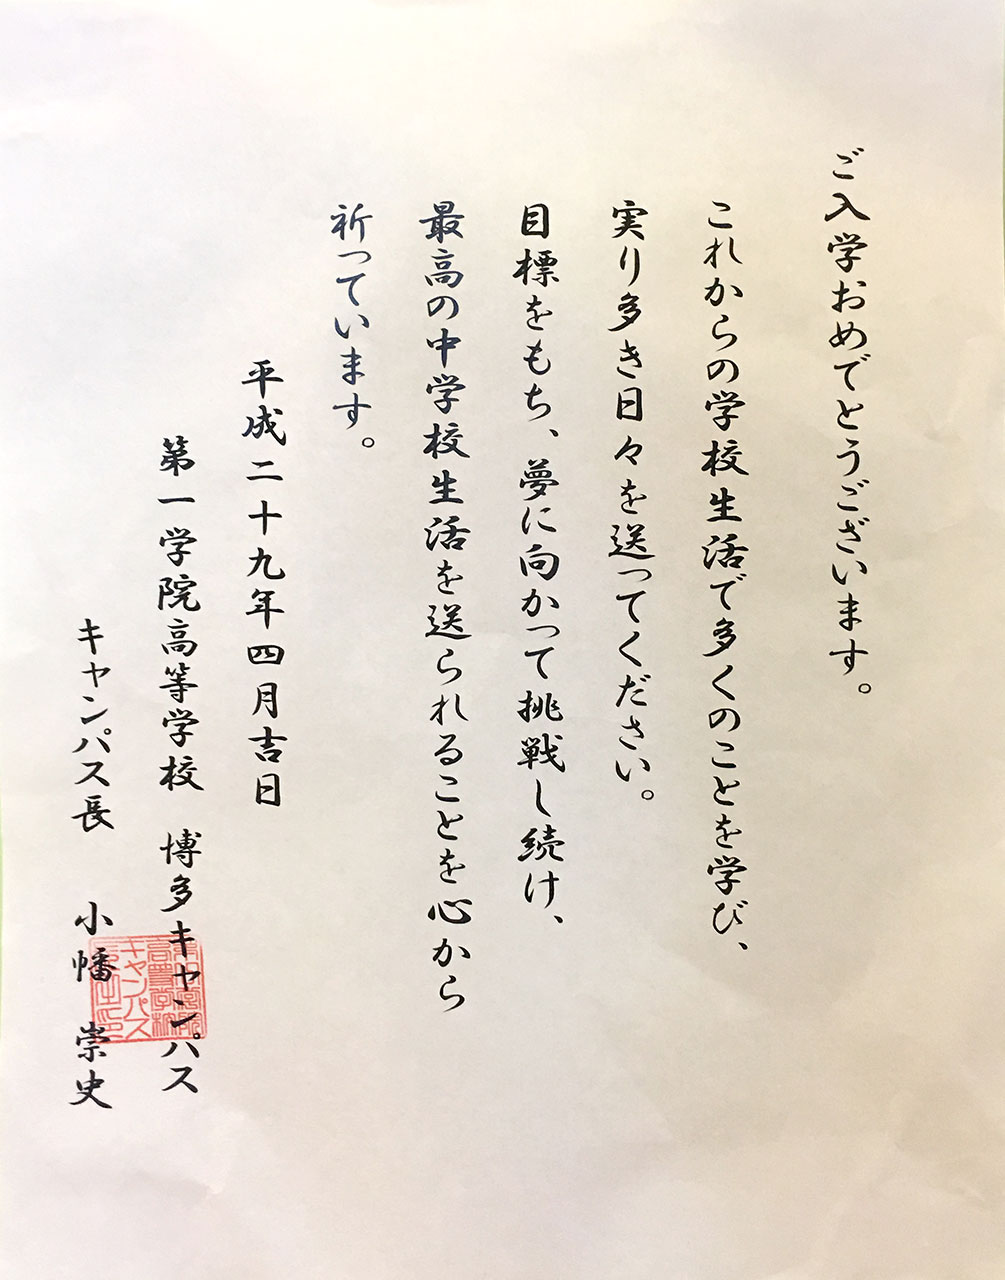 ご入学おめでとうございます。
これからの学校生活で多くのことを学び、
実り多き日々を送ってください。
目標をもち、夢に向かって挑戦し続け、
最高の中学校生活を送られることを心から
祈っています。
平成二十九年四月吉日
第一学院高等学校　博多キャンパス
キャンパス長　小幡　崇史
高等学校
キャンパス